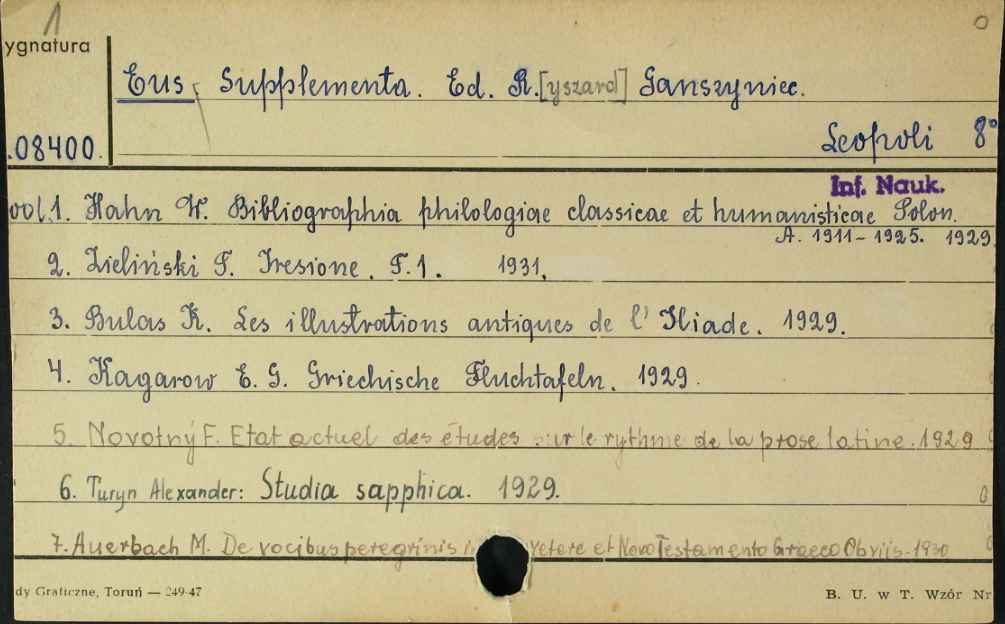 1
ygnatura
Eus, Supplementa. Ed. R.[yszard] Ganszyniec.
.08400.
Leopoli 8°
Inf. Nauk.
vol.1. Hahn W. Bibliographia philologiae classicae et humanisticae Polon.
A. 1911-1925. 1929
2. Zieliński T. Iresione. T.1. 1931.
3. Bulas K. Les illustrations antiques de l'Iliade. 1929.
4. Kagarow E. G. Griechische Fluchtafeln. 1929.
5. Novotný F. Etat actuel des études sur le rythme de la prose latine. 1929
6. Turyn Alexander: Studia sapphica. 1929.
0
7. Auerbach M. De vocibus peregrinis Vetere et Novo Testamento Graeco Obviis. 1930
dy Graficzne, Toruń — 249-47
B. U. w T. Wzór Nr